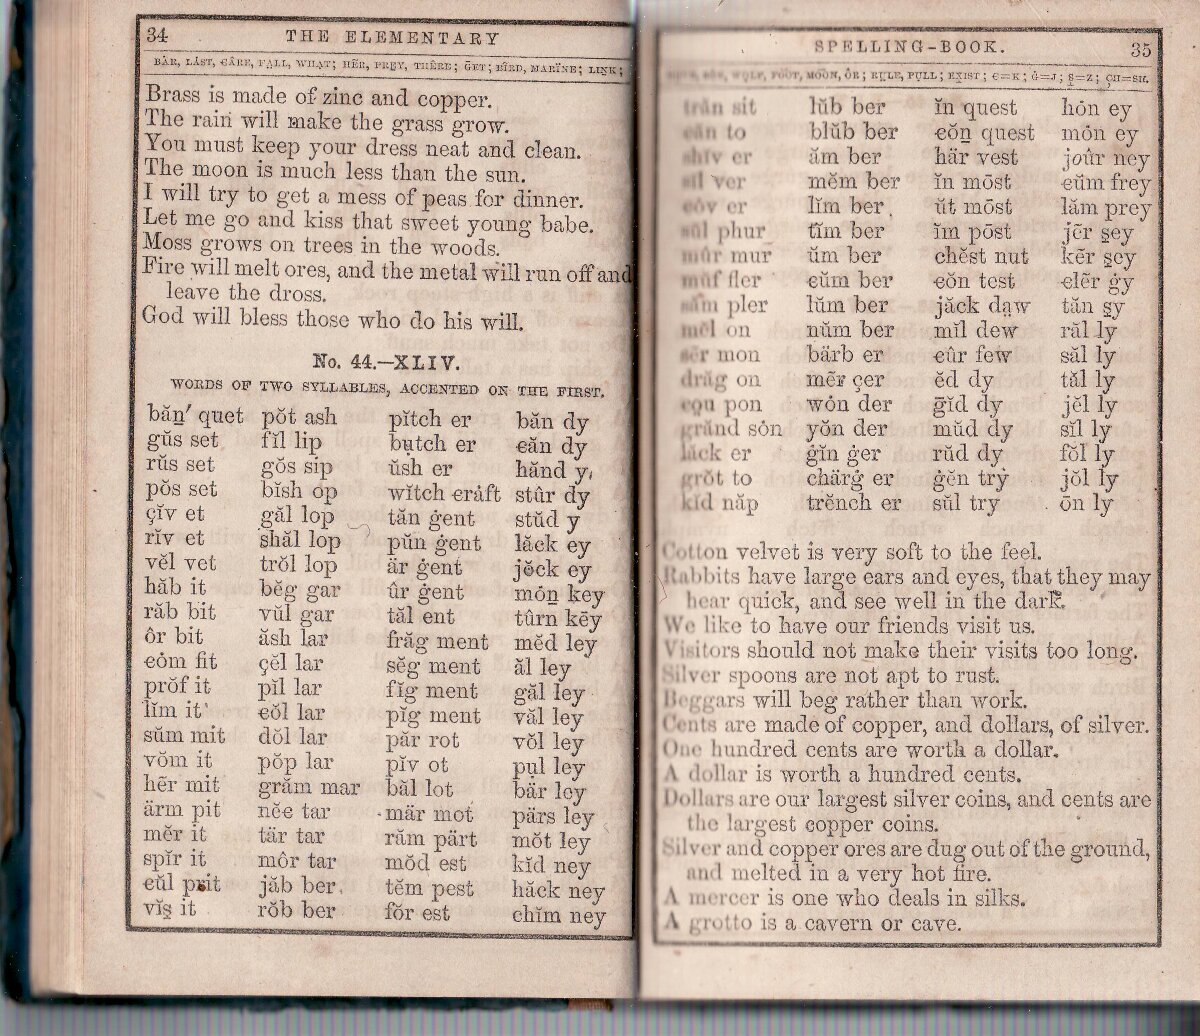 34 THE ELEMENTARY
BÄR, LÁST, CÂRE, FALL, WHAT; HĒR, PREY, THÊRE; ḠET; BÏRD, MARÏNE; LINK;
Brass is made of zinc and copper.
The rain will make the grass grow.
You must keep your dress neat and clean.
The moon is much less than the sun.
I will try to get a mess of peas for dinner.
Let me go and kiss that sweet young babe.
Moss grows on trees in the woods.
Fire will melt ores, and the metal will run off and
leave the dross.
God will bless those who do his will.
No. 44.—XLIV.
WORDS OF TWO SYLLABLES, ACCENTED ON THE FIRST.
băṉ′ quet pŏt ash pĭtch er băn dy
gŭs set fĭl lip bụtch er căn dy
rŭs set gŏs sip ŭsh er hănd y
pŏs set bĭsh op wĭtch cráft stûr dy
çĭv et găl lop tăn ġent stŭd y
rĭv et shăl lop pŭn ġent lăck ey
vĕl vet trŏl lop är ġent jŏck ey
hăb it bĕg gar ûr ġent mȯṉ key
răb bit vŭl gar tăl ent tûrn kēy
ôr bit ăsh lar frăg ment mĕd ley
cȯm fit çĕl lar sĕg ment ăl ley
prŏf it pĭl lar fĭg ment găl ley
lĭm it cŏl lar pĭg ment văl ley
sŭm mit dŏl lar păr rot vŏl ley
vŏm it pŏp lar pĭv ot pụl ley
hēr mit grăm mar băl lot bär ley
ärm pit nĕc tar mär mot pärs ley
mĕr it tär tar răm pärt mŏt ley
spĭr it môr tar mŏd est kĭd ney
cŭl prit jăb ber tĕm pest hăck ney
vĭs̱ it rŏb ber fŏr est chĭm ney
SPELLING-BOOK. 35
WOLF, FOOT, MOON, ÔR; RULE, PULL; EXIST; C=K; Ġ=J; S̱=Z; ÇH=SH.
trăn sit lŭb ber ĭn quest hȯn ey
căn to blŭb ber cŏṉ quest mȯn ey
shĭv er ăm ber här vest joûr ney
sĭl ver mĕm ber ĭn mōst cŭm frey
cȯv er lĭm ber ŭt mōst lăm prey
sŭl phur tĭm ber ĭm pōst jēr s̱ey
mûr mur ŭm ber chĕst nut kēr s̱ey
mŭf fler cŭm ber cŏn test clēr ġy
săm pler lŭm ber jăck dạw tăn s̱y
mĕl on nŭm ber mĭl dew răl ly
sēr mon bärb er cûr few săl ly
drăg on mēr çer ĕd dy tăl ly
cou pon wȯn der ḡĭd dy jĕl ly
grănd sȯn yŏn der mŭd dy sĭl ly
lăck er ġĭn ġer rŭd dy fŏl ly
grŏt to chärġ er ġĕn try jŏl ly
kĭd năp trĕnch er sŭl try ōn ly
Cotton velvet is very soft to the feel.
Rabbits have large ears and eyes, that they may
hear quick, and see well in the dark.
We like to have our friends visit us.
Visitors should not make their visits too long.
Silver spoons are not apt to rust.
Beggars will beg rather than work.
Cents are made of copper, and dollars, of silver.
One hundred cents are worth a dollar.
A dollar is worth a hundred cents.
Dollars are our largest silver coins, and cents are
the largest copper coins.
Silver and copper ores are dug out of the ground,
and melted in a very hot fire.
A mercer is one who deals in silks.
A grotto is a cavern or cave.